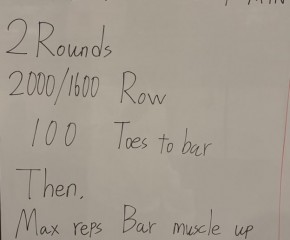 2 Rounds
2000/1600 Row
100 Toes to bar
Then,
Max reps Bar muscle up